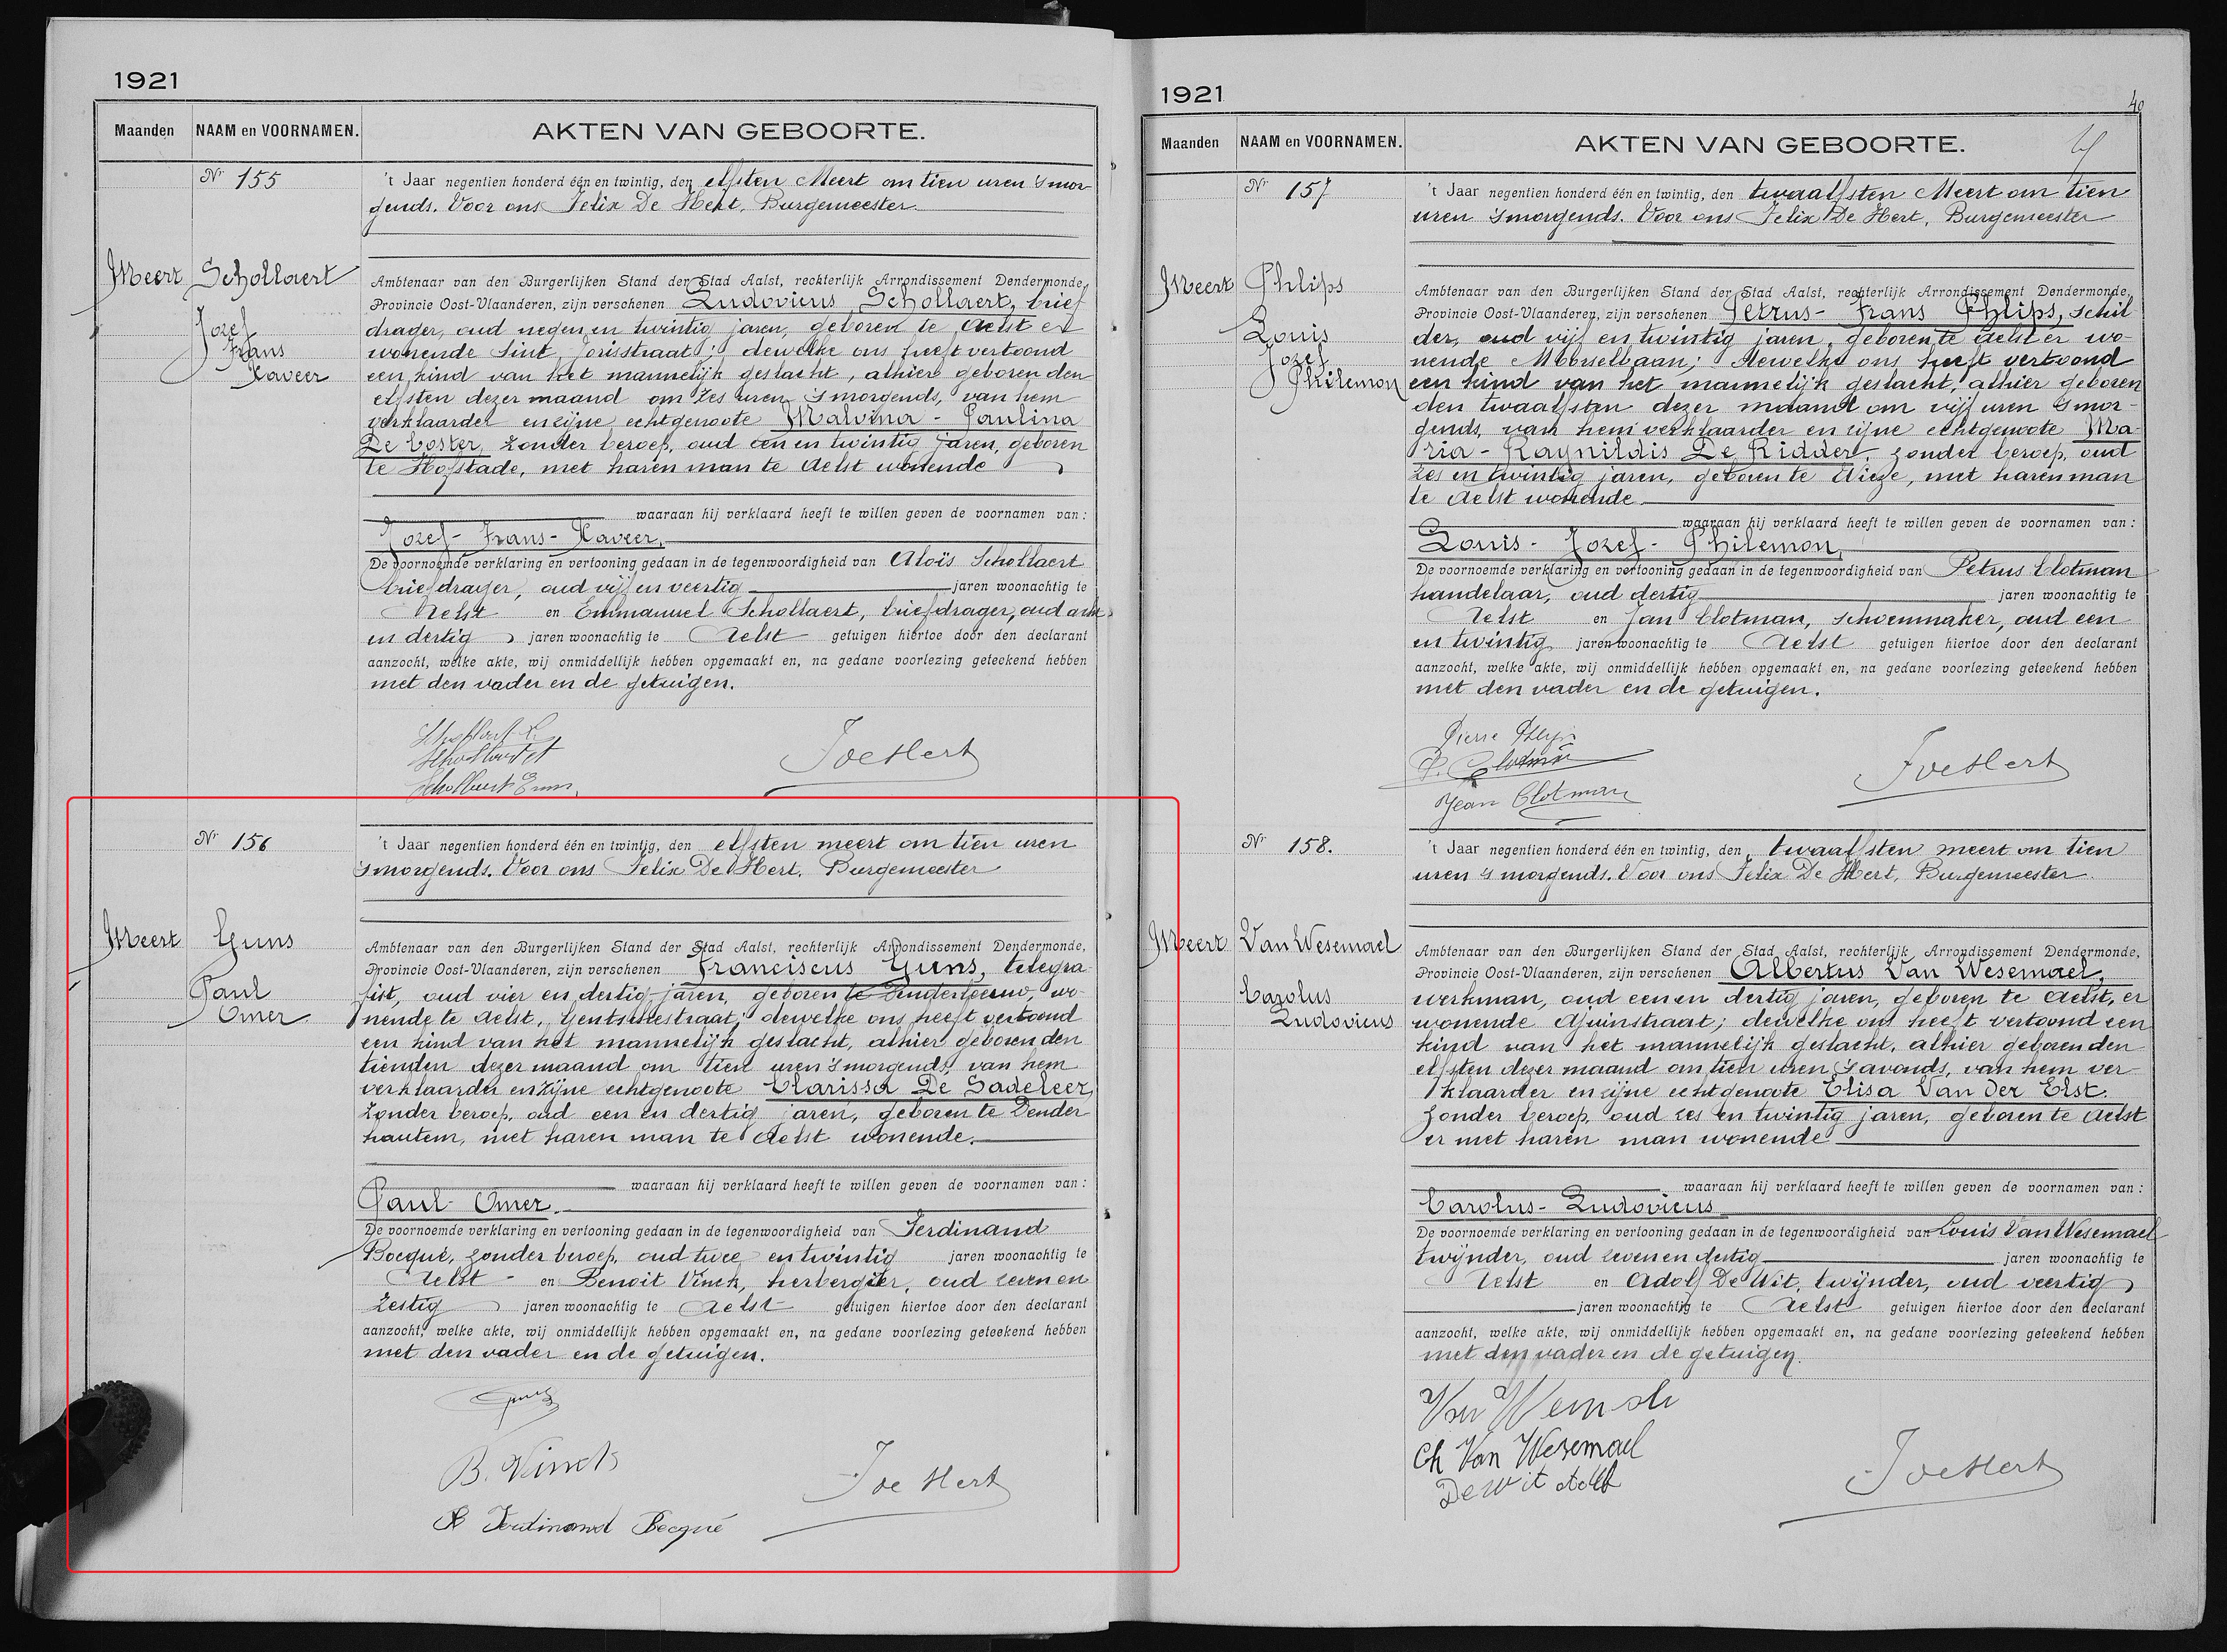 1921
Maanden NAAM en VOORNAMEN. AKTEN VAN GEBOORTE.
Nr 155
't Jaar negentien honderd één en twintig, den elfsten Meert om tien uren 's mor-
gends. Voor ons Felix De Hert, Burgemeester
Meert Schollaert
Jozef
Frans
Xaveer
Ambtenaar van den Burgerlijken Stand der Stad Aalst, rechterlijk Arrondissement Dendermonde,
Provincie Oost-Vlaanderen, zijn verschenen Ludovicus Schollaert, brief
drager, oud negen en twintig jaren, geboren te Aelst er
wonende Sint Jorisstraat; dewelke ons heeft vertoond
een kind van het mannelijk geslacht, alhier geboren den
elfsten dezer maand om zes uren 's morgends, van hem
verklaarder en zijne echtgenoote Malvina - Paulina
De Coster, zonder beroep, oud een en twintig jaren, geboren
te Hofstade, met haren man te Aelst wonende
waaraan hij verklaard heeft te willen geven de voornamen van:
Jozef - Frans - Xaveer,
De voornoemde verklaring en vertooning gedaan in de tegenwoordigheid van Aloïs Schollaert
briefdrager, oud vijf en veertig jaren woonachtig te
Aelst en Emmanuel Schollaert, briefdrager, oud acht
en dertig jaren woonachtig te Aelst getuigen hiertoe door den declarant
aanzocht, welke akte, wij onmiddellijk hebben opgemaakt en, na gedane voorlezing geteekend hebben
met den vader en de getuigen.
Schollaert L.
Schollaert A
Schollaert Emm.
FDeHert
Nr 156
't Jaar negentien honderd één en twintig, den elfsten meert om tien uren
's morgends. Voor ons Felix De Hert, Burgemeester
Meert Guns
Paul
Omer
Ambtenaar van den Burgerlijken Stand der Stad Aalst, rechterlijk Arrondissement Dendermonde,
Provincie Oost-Vlaanderen, zijn verschenen Franciscus Guns, telegra-
fist, oud vier en dertig jaren, geboren te Denderleeuw, wo-
nende te Aelst, Gentschestraat; dewelke ons heeft vertoond
een kind van het mannelijk geslacht, alhier geboren den
tienden dezer maand om tien uren 's morgends, van hem
verklaarder en zijne echtgenoote Clarissa De Sadeleer,
zonder beroep, oud een en dertig jaren, geboren te Dender
hautem, met haren man te Aelst wonende.
waaraan hij verklaard heeft te willen geven de voornamen van:
Paul - Omer.
De voornoemde verklaring en vertooning gedaan in de tegenwoordigheid van Ferdinand
Bocqué, zonder beroep, oud twee en twintig jaren woonachtig te
Aelst en Benoit Vinck, herbergier, oud zeven en
zestig jaren woonachtig te Aelst getuigen hiertoe door den declarant
aanzocht, welke akte, wij onmiddellijk hebben opgemaakt en, na gedane voorlezing geteekend hebben
met den vader en de getuigen.
Guns
B. Vinck
Ferdinand Bocqué
FDe Hert
1921
40
Maanden NAAM en VOORNAMEN. AKTEN VAN GEBOORTE.
Nr 157
't Jaar negentien honderd één en twintig, den twaalfsten Meert om tien
uren 's morgends. Voor ons Felix De Hert, Burgemeester
Meert Phlips
Louis
Jozef
Philemon
Ambtenaar van den Burgerlijken Stand der Stad Aalst, rechterlijk Arrondissement Dendermonde,
Provincie Oost-Vlaanderen, zijn verschenen Petrus - Frans Phlips, schil
der, oud vijf en twintig jaren, geboren te Aelst er wo-
nende Moorselbaan; dewelke ons heeft vertoond
een kind van het mannelijk geslacht, alhier geboren
den twaalfsten dezer maand om vijf uren 's mor-
gends, van hem verklaarder en zijne echtgenoote Ma-
ria - Raynildis De Ridder, zonder beroep, oud
zes en twintig jaren, geboren te Wieze, met haren man
te Aelst wonende
waaraan hij verklaard heeft te willen geven de voornamen van:
Louis - Jozef - Philemon,
De voornoemde verklaring en vertooning gedaan in de tegenwoordigheid van Petrus Clotman
handelaar, oud dertig jaren woonachtig te
Aelst en Jan Clotman, schoenmaker, oud een
en twintig jaren woonachtig te Aelst getuigen hiertoe door den declarant
aanzocht, welke akte, wij onmiddellijk hebben opgemaakt en, na gedane voorlezing geteekend hebben
met den vader en de getuigen.
Pierre Phlips
P. Clotman
Jean Clotman
FDeHert
Nr 158.
't Jaar negentien honderd één en twintig, den twaalfsten meert om tien
uren 's morgends. Voor ons Felix De Hert, Burgemeester
Meert Van Wesemael
Carolus
Ludovicus
Ambtenaar van den Burgerlijken Stand der Stad Aalst, rechterlijk Arrondissement Dendermonde,
Provincie Oost-Vlaanderen, zijn verschenen Albertus Van Wesemael,
werkman, oud een en dertig jaren, geboren te Aelst, er
wonende Ajuinstraat; dewelke ons heeft vertoond een
kind van het mannelijk geslacht, alhier geboren den
elfsten dezer maand om tien uren 's avonds, van hem ver
klaarder en zijne echtgenoote Elisa Van der Elst.
zonder beroep, oud zes en twintig jaren, geboren te Aelst
er met haren man wonende
waaraan hij verklaard heeft te willen geven de voornamen van:
Carolus - Ludovicus
De voornoemde verklaring en vertooning gedaan in de tegenwoordigheid van Louis Van Wesemael
twijnder, oud zeven en dertig jaren woonachtig te
Aelst en Adolf De Wit, twijnder, oud veertig
jaren woonachtig te Aelst getuigen hiertoe door den declarant
aanzocht, welke akte, wij onmiddellijk hebben opgemaakt en, na gedane voorlezing geteekend hebben
met den vader en de getuigen.
Ch Van Wesemael
De Wit Adolf
FDeHert